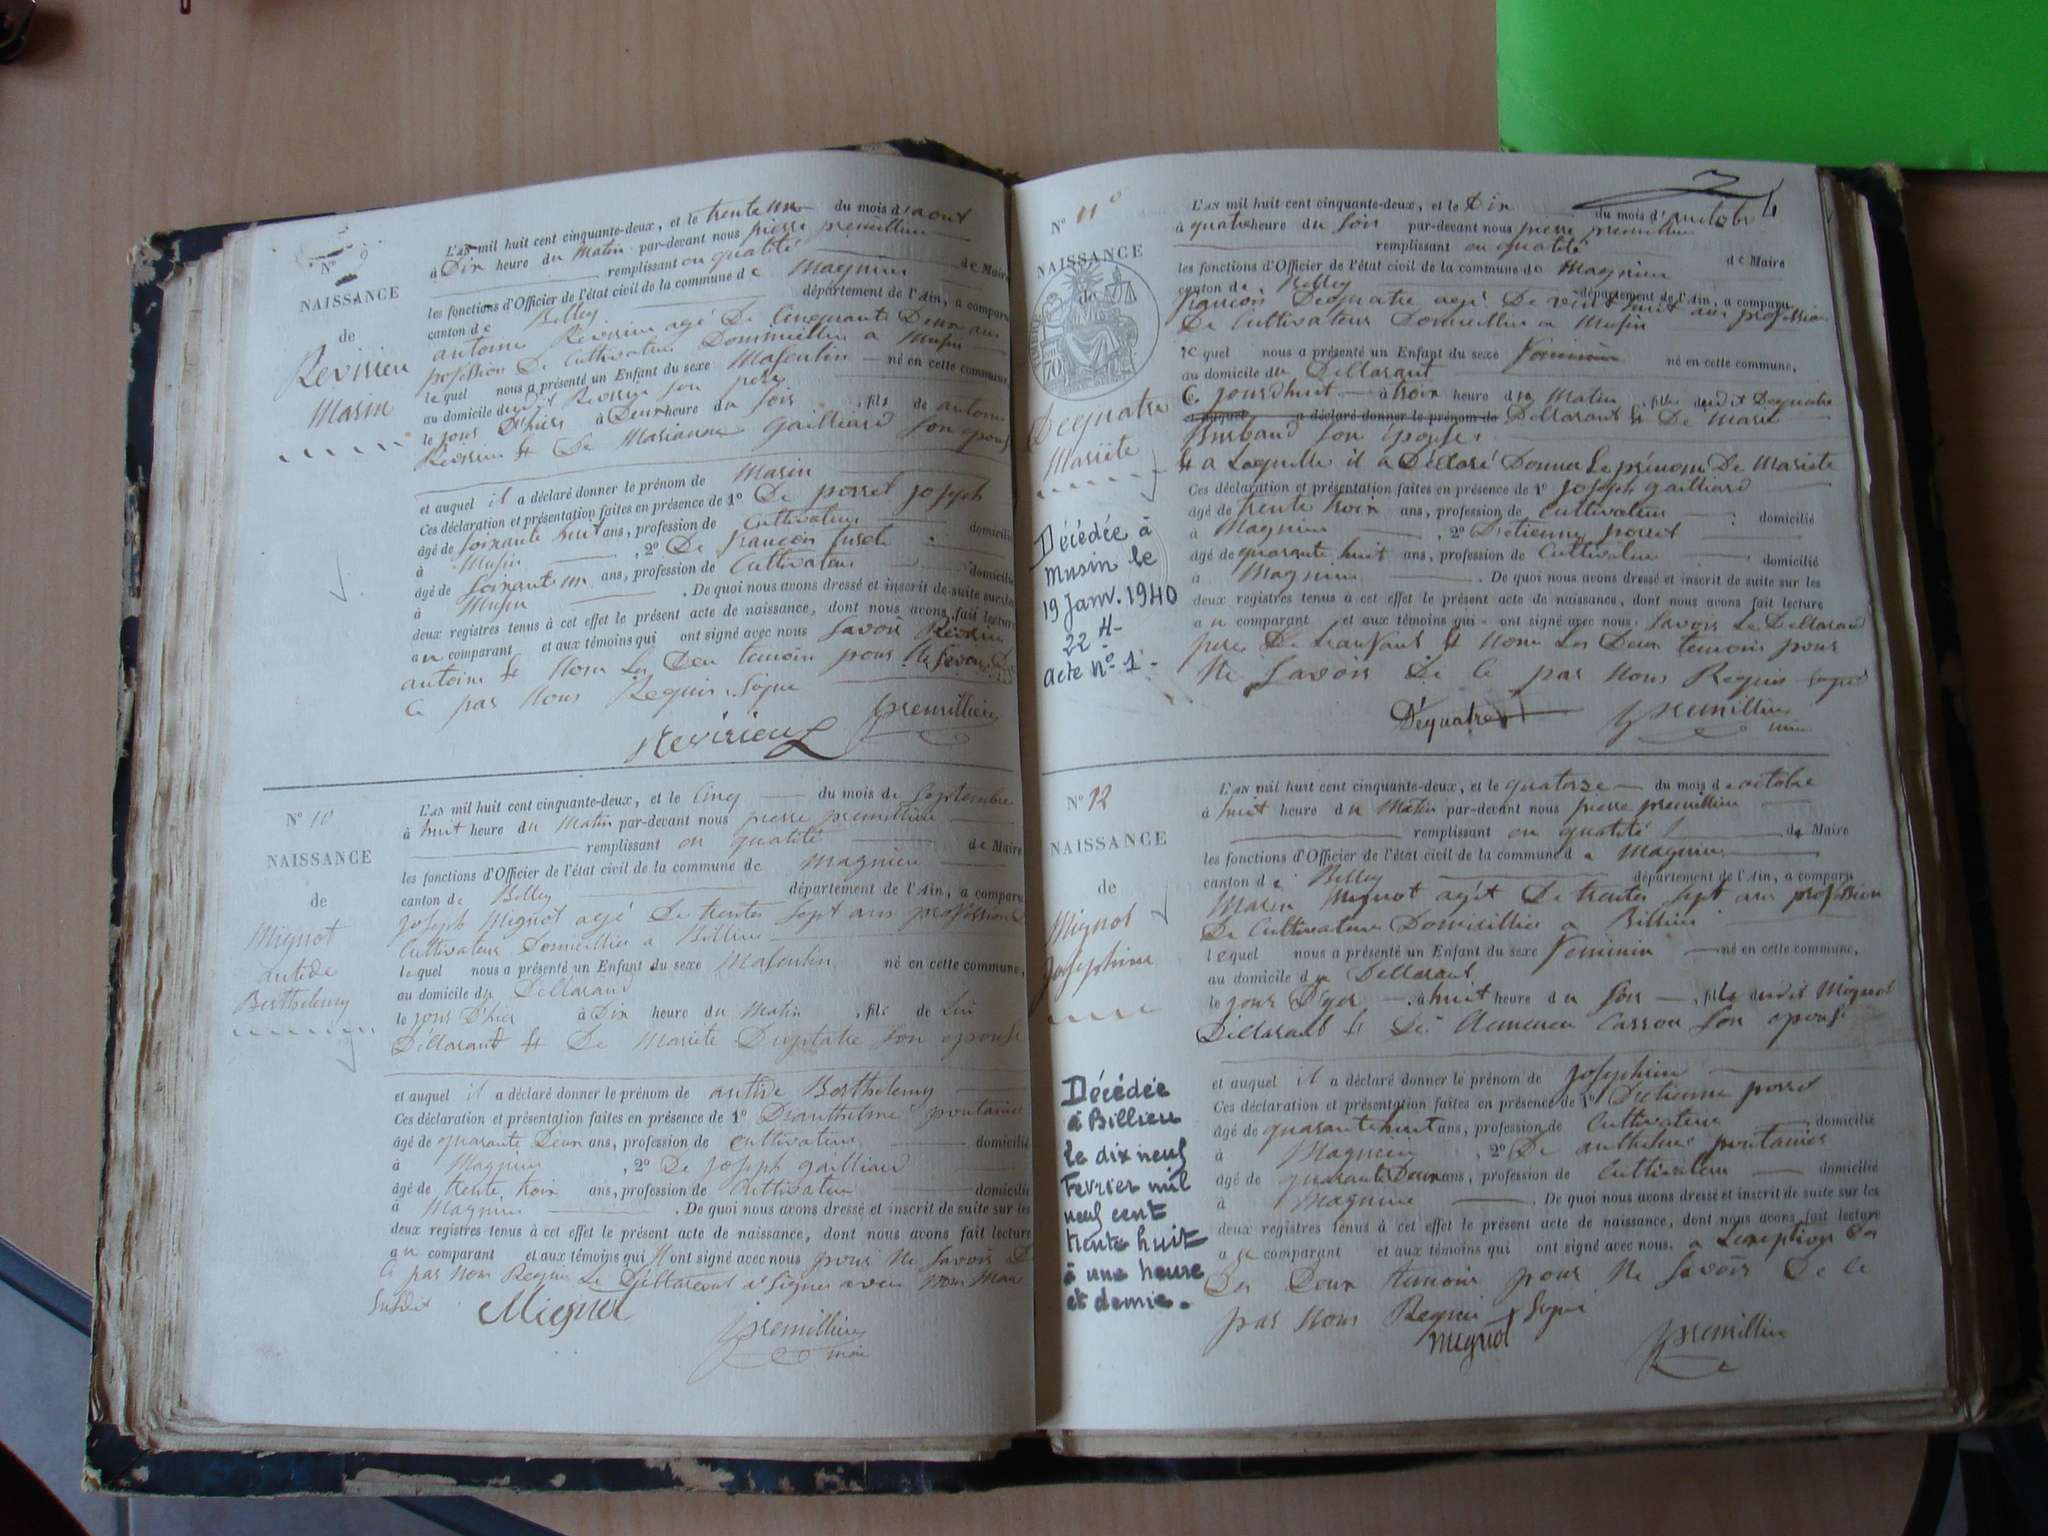 N° 9
NAISSANCE
de
Revirieu
Marin
L'AN mil huit cent cinquante-deux, et le trente un du mois d'aout
à Dix heure du Matin par-devant nous pierre premillieu
remplissant en qualité de Maire
les fonctions d'Officier de l'état civil de la commune de Magnieu
canton de Belley département de l'Ain, a comparu
antoine Revirieu agé De Cinquante Deux ans
profession De Cultivateur Domicillier a Musin
lequel nous a présenté un Enfant du sexe Masculin né en cette commune,
au domicile du dit Revirieu son pere
le jour D'hier à Deux heure du soir, fils de antoine
Revirieu & De Marianne gailliard son epouse
et auquel il a déclaré donner le prénom de Marin
Ces déclaration et présentation faites en présence de 1° De porret Joseph
âgé de soixante huit ans, profession de Cultivateur domicilié
à Musin, 2° De françois
âgé de soixante un ans, profession de Cultivateur domicilié
à Musin. De quoi nous avons dressé et inscrit de suite sur les
deux registres tenus à cet effet le présent acte de naissance, dont nous avons fait lecture
au comparant et aux témoins qui ont signé avec nous savoir Revirieu
antoine & Nom Les Deu temoin pour Ne savoir De
Ce par Nous Requis Signe
Revirieu premillieu
N° 10
NAISSANCE
de
Mignot
antide
Berthelemy
L'AN mil huit cent cinquante-deux, et le Cinq du mois de Septembre
à huit heure du Matin par-devant nous pierre premillieu
remplissant en qualité de Maire
les fonctions d'Officier de l'état civil de la commune de Magnieu
canton de Belley département de l'Ain, a comparu
Joseph Mignot agé De trentes Sept ans profession
Cultivateur Domicillier a Billieu
lequel nous a présenté un Enfant du sexe Masculin né en cette commune,
au domicile du Dellarand
le jour D'hier à Dix heure du Matin, fils de Lui
Dellarant & De Mariete Duptatre son epouse
et auquel il a déclaré donner le prénom de antide Berthelemy
Ces déclaration et présentation faites en présence de 1° D'anthelme pontanier
âgé de quarante Deux ans, profession de Cultivateur domicilié
à Magnieu, 2° De Joseph gailliard
âgé de trente troix ans, profession de Cultivateur domicilié
à Magnieu. De quoi nous avons dressé et inscrit de suite sur les
deux registres tenus à cet effet le présent acte de naissance, dont nous avons fait lecture
au comparant et aux témoins qui n'ont signé avec nous pour Ne savoir De
Ce par Nous Requis Le Dellarant a Signer avec Nous Maire
Susdit Mignot premillieu
maire
N° 11
NAISSANCE
de
Dequatre
Mariete
Décédée à
Musin le
19 Janv. 1940
22 H-
acte n° 1.
L'AN mil huit cent cinquante-deux, et le Dix du mois d'auctobre
à quatre heure du soir par-devant nous pierre premillieu
remplissant en qualité de Maire
les fonctions d'Officier de l'état civil de la commune de Magnieu
canton de Belley département de l'Ain, a comparu
françois Dequatre agé De vint huit ans profession
De Cultivateur Domicillier a Musin
lequel nous a présenté un Enfant du sexe Feminin né en cette commune,
au domicile du Dellarant
Ce jourd'huit à troix heure du Matin, fille dudit Dequatre
auquel a déclaré donner le prénom de Dellarant & De Marie
Burbaud son épouse
& a Laquelle il a Déclaré Donner Le prénom De Mariete
Ces déclaration et présentation faites en présence de 1° Joseph gailliard
âgé de trente troix ans, profession de Cultivateur domicilié
à Magnieu, 2° D'etienne porret
âgé de quarante huit ans, profession de Cultivateur domicilié
à Magnieu. De quoi nous avons dressé et inscrit de suite sur les
deux registres tenus à cet effet le présent acte de naissance, dont nous avons fait lecture
au comparant et aux témoins qui ont signé avec nous savoir Le Dellarand
pere De Leanfant & Nom Les Deux temoins pour
Ne Savoir De Ce par Nous Requis signer
Déquatre premillieu
maire
N° 12
NAISSANCE
de
Mignot
Josephine
Décédée
à Billieu
le dix neuf
Fevrier mil
neuf cent
trente huit
à une heure
et demie.
L'AN mil huit cent cinquante-deux, et le quatorze du mois de octobre
à huit heure du Matin par-devant nous pierre premillieu
remplissant en qualité de Maire
les fonctions d'Officier de l'état civil de la commune de Magnieu
canton de Belley département de l'Ain, a comparu
Marin Mignot agét De trentes sept ans profession
De Cultivateur Domicillier a Billieu
lequel nous a présenté un Enfant du sexe Feminin né en cette commune,
au domicile du Dellarant
le jour D'yer à huit heure du Soir, fille dudit Mignot
Dellarant & De Clemence Carron son epouse
et auquel il a déclaré donner le prénom de Josephine
Ces déclaration et présentation faites en présence de 1° D'etienne porret
âgé de quarante huit ans, profession de Cultivateur domicilié
à Magnieu, 2° De anthelme pontanier
âgé de quarante Deux ans, profession de Cultivateur domicilié
à Magnieu. De quoi nous avons dressé et inscrit de suite sur les
deux registres tenus à cet effet le présent acte de naissance, dont nous avons fait lecture
au comparant et aux témoins qui ont signé avec nous. a L'exeption De
Des Deux temoin pour Ne savoir De Ce
par Nous Requis Signé
Mignot premillieu